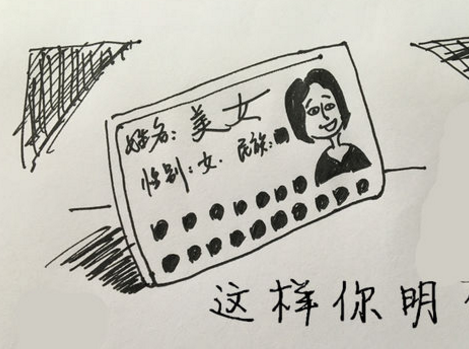 姓名：美女
性别：女 民族：
这样你明